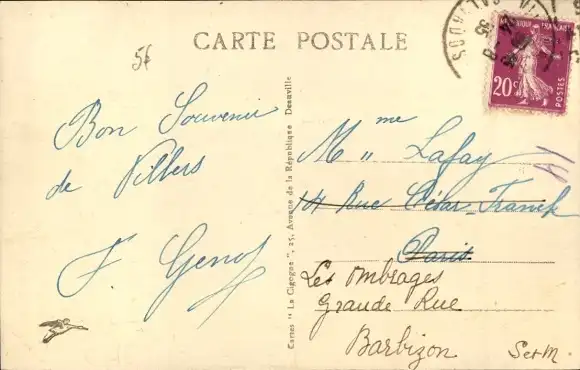 CARTE POSTALE
5f
Bon Souvenir
de Villers
F Genof
Cartes "La Cigogne", 25, Avenue de la République Deauville
CALVADOS
35
RÉPUBLIQUE FRANÇAISE
20c
POSTES
Mme Lafay
14 Rue César Franck
Paris
Les Ombrages
Grande Rue
Barbizon
S et M